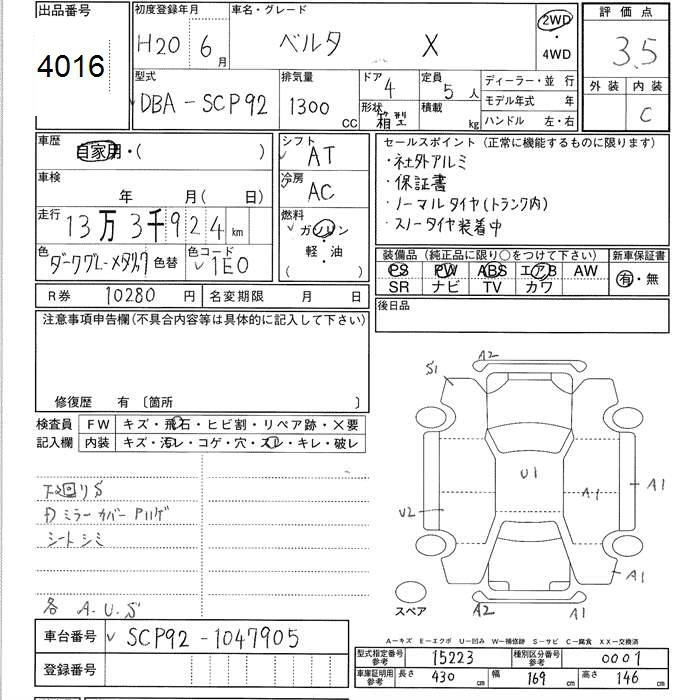 出品番号 初度登録年月 車名・グレード 評価点
4016 H20 6月 ベルタ X 2WD・4WD 3.5
外装 内装 C
型式 排気量 ドア 4 定員 5人 ディーラー・並行
DBA-SCP92 1300cc 形状 箱型 積載 kg モデル年式 年
ハンドル 左・右
車歴 自家用・( )
シフト AT
セールスポイント(正常に機能するものに限ります)
・社外アルミ
・保証書
・ノーマルタイヤ(トランク内)
・スノータイヤ装着中
車検 年 月( 日)
冷房 AC
走行 13万3千924km
燃料 ガソリン 軽・油 ( )
色 ダークグレーメタリック 色替 色コード 1E0
装備品(純正品に限り○をつけて下さい) 新車保証書
PS PW ABS エアB AW 有・無
SR ナビ TV カワ
R券 10280円 名変期限 月 日
後日品
注意事項申告欄(不具合内容等は具体的に記入して下さい)
修復歴 有〔箇所 〕
検査員記入欄 FW キズ・飛石・ヒビ割・リペア跡・×要
内装 キズ・汚レ・コゲ・穴・スレ・キレ・破レ
下回りS
ミラーカバーPハゲ
シートシミ
各 A.U.S
S1 A2
U1
A1 A1
U2
A1
A2 A1
スペア
A−キズ E−エクボ U−凹み W−補修跡 S−サビ C−腐食 XX−交換済
車台番号 SCP92-1047905
登録番号
型式指定番号 参考 15223 種別区分番号 参考 0001
車庫証明用 参考 長さ 430cm 幅 169cm 高さ 146cm